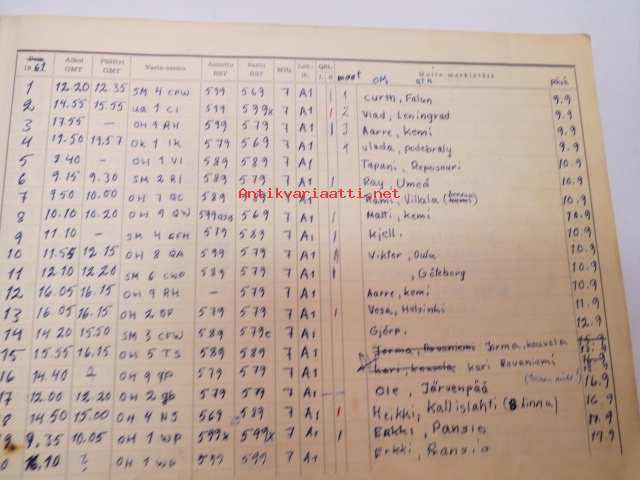 1961 Alkoi GMT Päättyi GMT Vasta-asema Annettu RST Saatu RST MHz QSL maat OM QTH Muita merkintöjä päivä
1 12.20 12.35 SM 4 CFW 599 569 7 A1 1 Curth, Falun 9.9
2 14.55 15.55 UA 1 CI 579 599x 7 A1 2 Vlad, Leningrad 9.9
3 17.55 — OH 9 RH 599 579 7 A1 3 Aarre, Kemi 9.9
4 19.50 19.57 OK 1 IK 579 569 7 A1 4 Vlada, podebraly 9.9
5 8.40 — OH 1 VI 589 589 7 A1 Tapani, Reposaari 10.9
6 9.15 9.30 SM 2 RI 589 579 7 A1 Ray, Umeå 10.9
7 9.50 10.00 OH 7 QC 589 589 7 A1 Rami, Villala 10.9
Antikvariaatti.net
8 10.10 10.20 OH 9 QW 569 7 A1 Matti, Kemi 10.9
9 11.10 — SM 4 GFH 589 589 7 A1 Kjell. 10.9
10 11.55 12.15 OH 8 QA 599 579 7 A1 Viktor, Oulu 10.9
11 12.10 12.20 SM 6 CWO 589 579 7 A1 , Göteborg 10.9
12 16.05 16.15 OH 9 RH — 579 7 A1 Aarre, Kemi 10.9
13 16.05 16.15 OH 2 579 579 7 A1 Vesa, Helsinki 11.9
14 14.20 15.50 SM 3 CFW 589 579c 7 A1 Björn. 12.9
15 15.55 16.15 OH 5 TS 589 589 7 A1 Jorma, Rovaniemi Jorma, Kouvola
16 14.40 ? OH 9 579 579 7 A1 Kari, Kouvola Kari Rovaniemi
17 12.00 12.20 OH 2 579 579 7 A1 — Ole, Järvenpää 16.9
8 14.50 15.00 OH 4 NS 569 589 7 A1 Heikki, Kallislahti (S.linna) 16.9
9 9.35 10.05 OH 1 WP 599x 599x 7 A1 Erkki, Pansio 17.9
0 16.10 ? OH 1 WP 599 599 7 A1 Erkki, Pansio 17.9